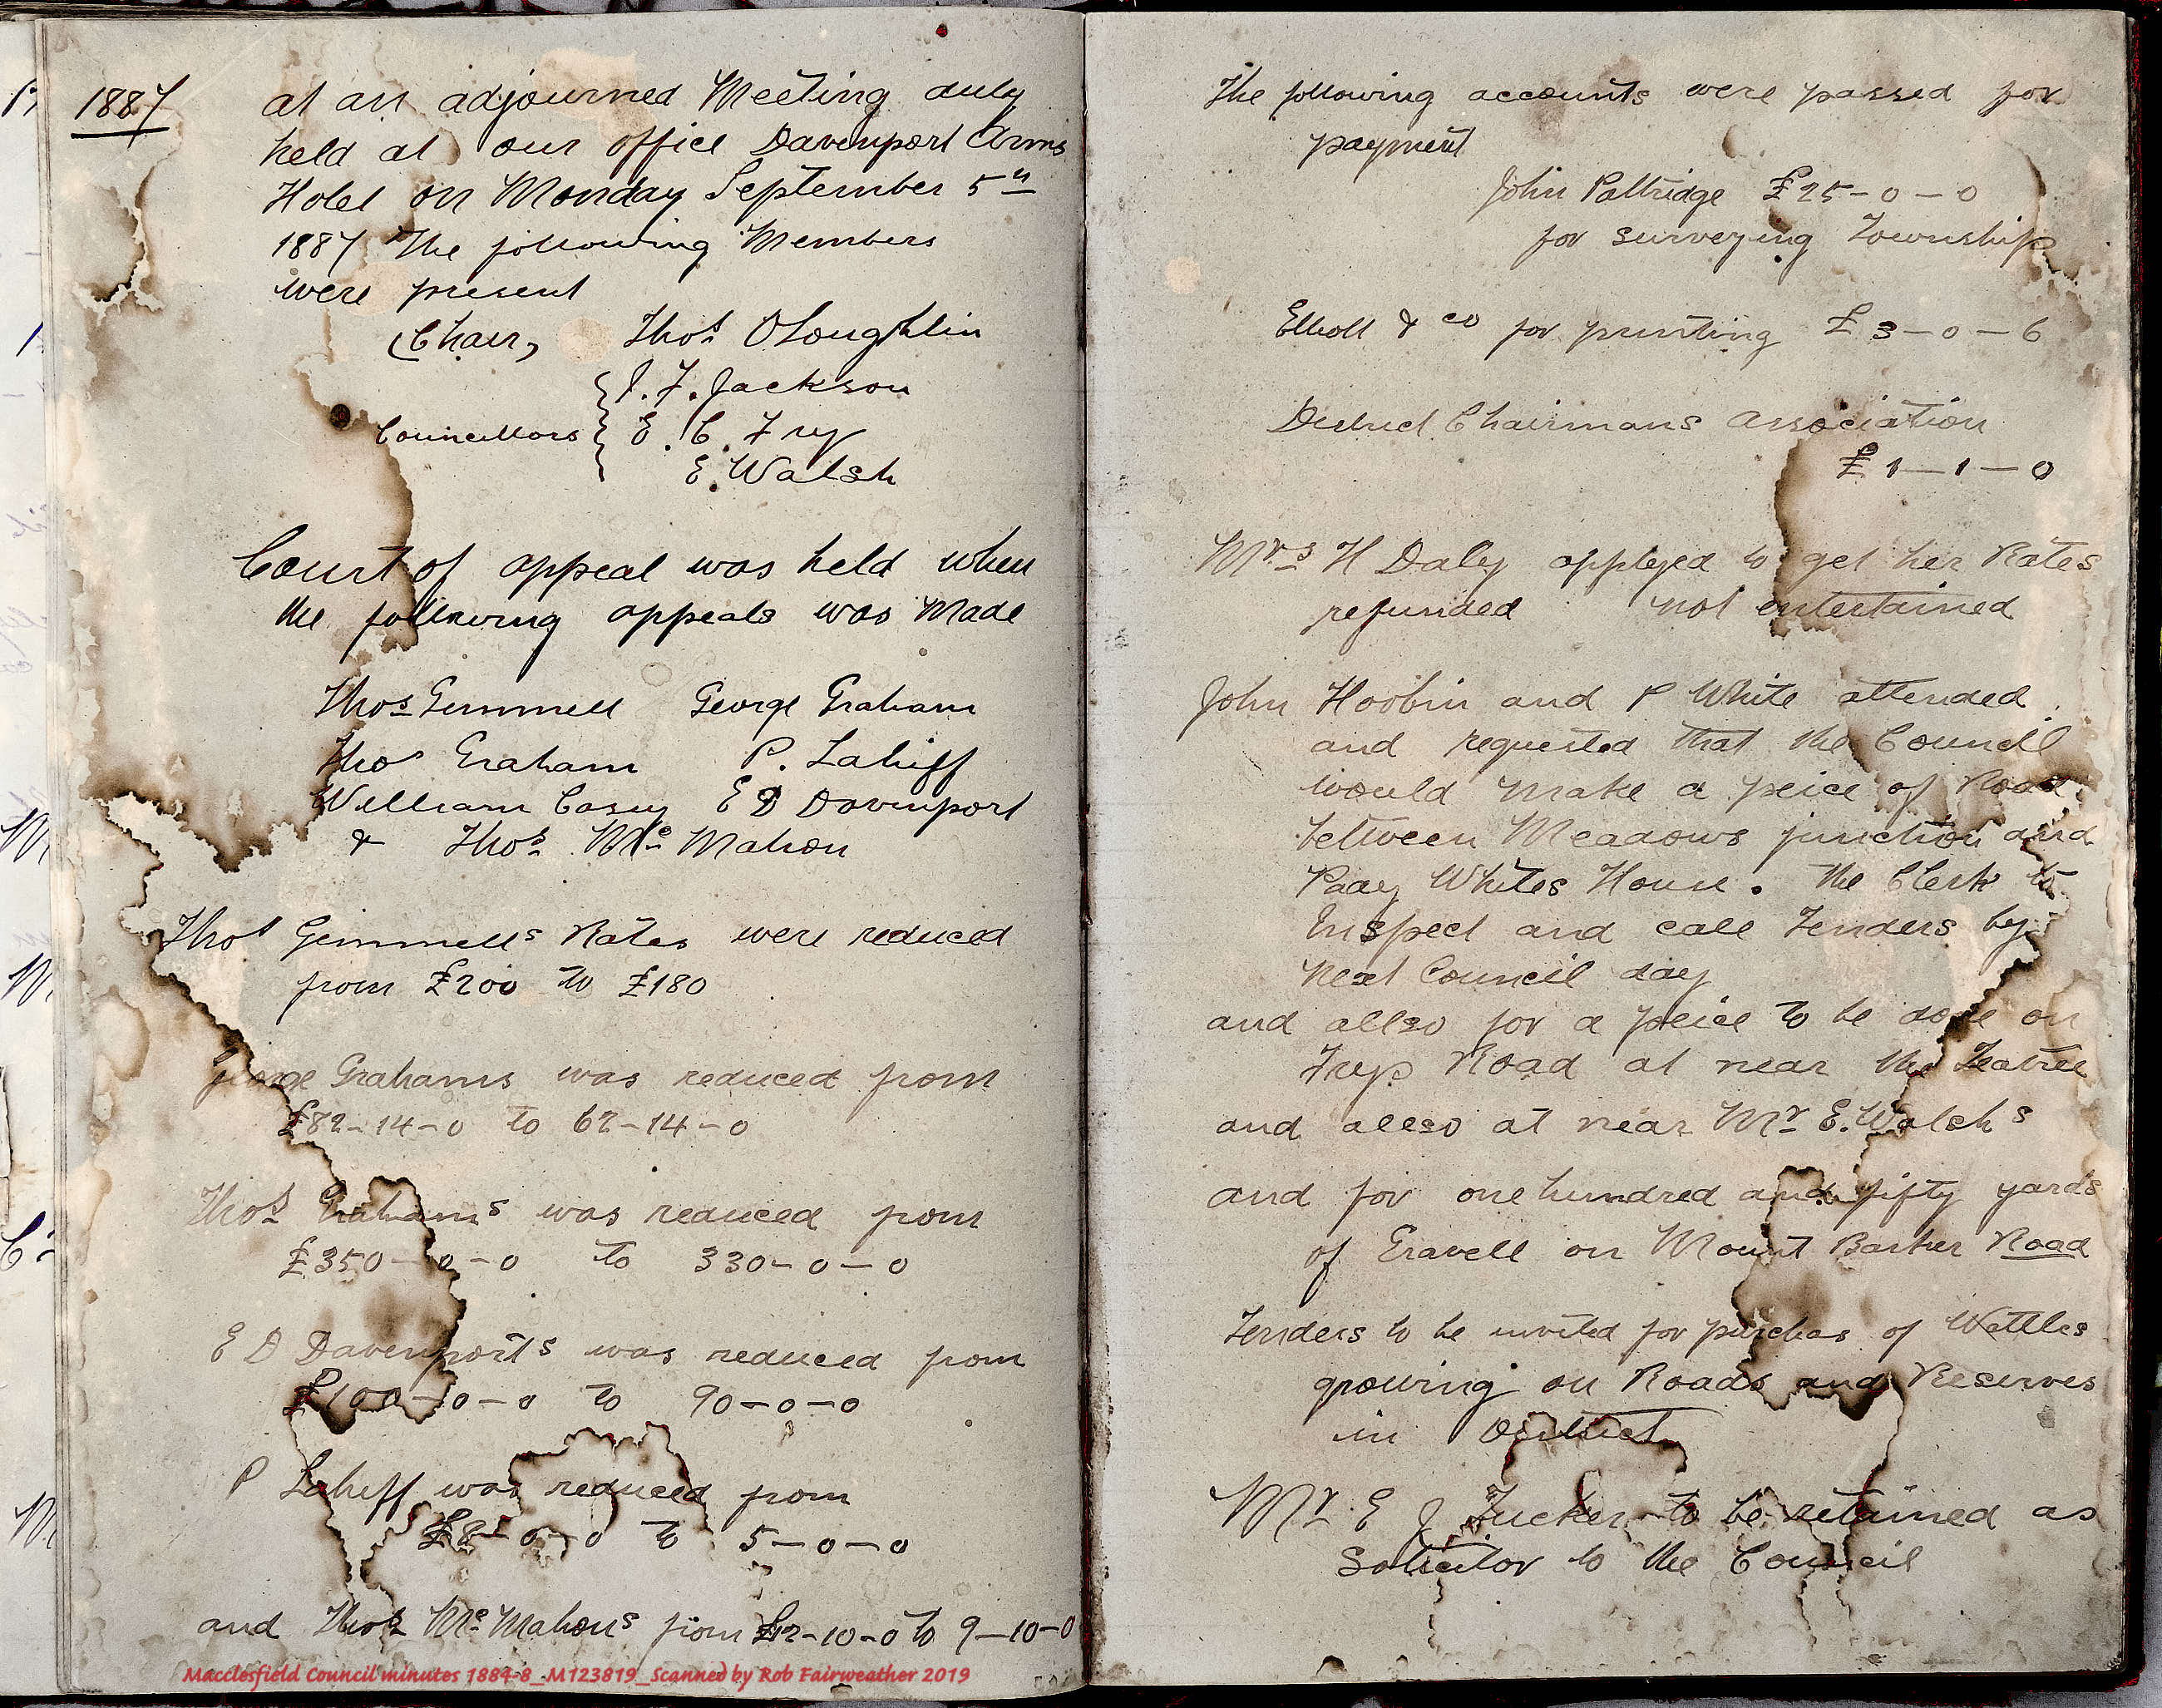 1887
at an adjourned Meeting duly
held at our office Davenport Arms
Hotel on Monday September 5th
1887 The following Members
were present
(Chair) Thos OLoughlin
J. F. Jackson
Councillors E. C. Fry
E. Walsh
Court of appeal was held when
the following appeals was Made
Thos Gemmell George Graham
Thos Graham P. Lahiff
William Casey E D Davenport
& Thos Mc Mahon
Thos Gemmells Rates were reduced
from £200 to £180
George Grahams was reduced from
£82-14-0 to 62-14-0
Thos Grahams was reduced from
£350-0-0 to 330-0-0
E D Davenports was reduced from
£100-0-0 to 90-0-0
P Laheff was reduced from
£8-0-0 to 5-0-0
and Thos Mc Mahons from £12-10-0 to 9-10-0
Macclesfield Council minutes 1884-8_M123819_Scanned by Rob Fairweather 2019
The following accounts were passed for
payment
John Paltridge £25-0-0
for surveying Township
Elliott & co for printing £3-0-6
District Chairmans association
£1-1-0
Mrs H Daley applyed to get her Rates
refunded not entertained
John Hoobin and P White attended
and requested that the Council
would make a peice of Road
between Meadows junction and
Pady Whites House. The Clerk to
Inspect and call Tenders by
next Council day
and allso for a peice to be done on
Frys Road at near the Teatree
and allso at near Mr E. Walshs
and for one hundred and fifty yards
of Gravell on Mount Barker Road
Tenders to be invited for purchas of Wattles
growing on Roads and Reserves
in District
Mr E J Tucker to be retained as
Solicitor to the Council